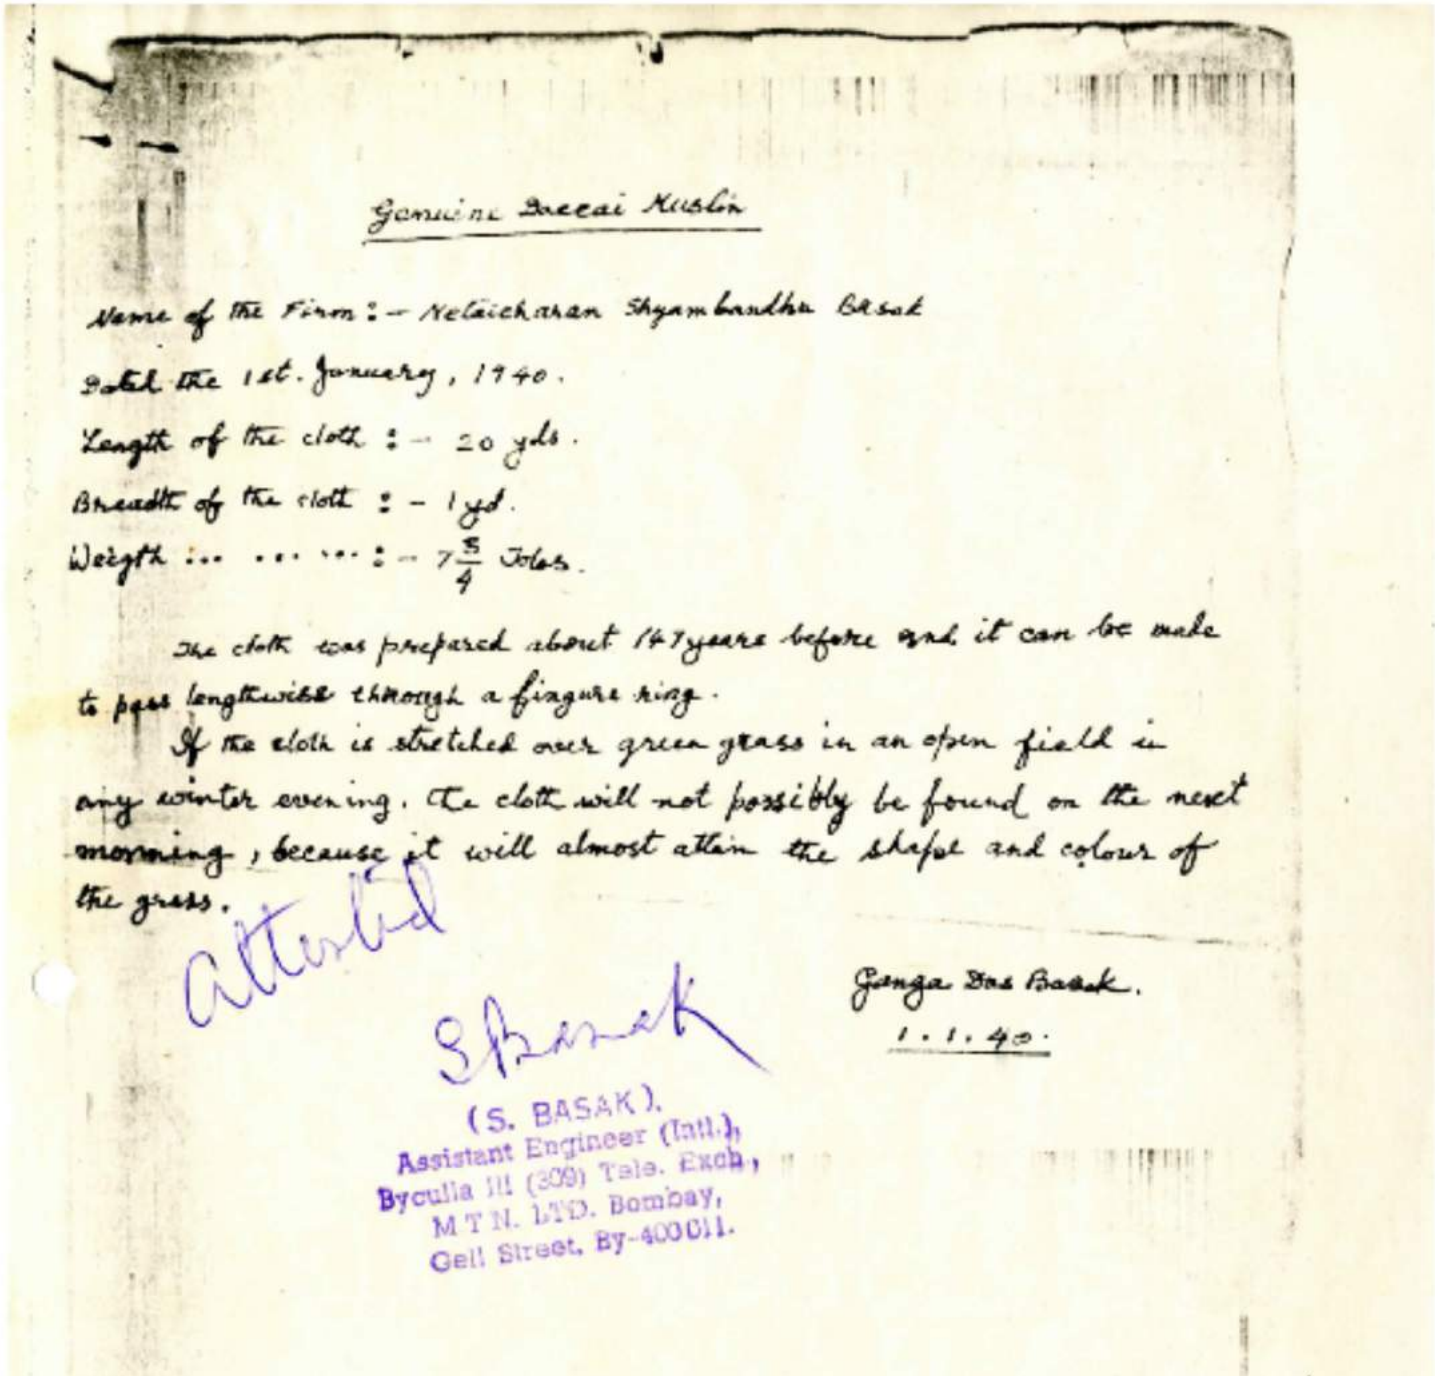 Genuine Daccai Muslin
Name of the Firm :- Netaicharan Shyambandhu Basak
Dated the 1st. January, 1940.
Length of the cloth :- 20 yds.
Breadth of the cloth :- 1 yd.
Weigth ... ... ... :- 7 3/4 Tolas.
The cloth was prepared about 147 years before and it can be made
to pass lengthwise through a fingure ring.
If the cloth is stretched over green grass in an open field in
any winter evening. The cloth will not possibly be found on the next
morning, because it will almost attain the shape and colour of
the grass.
Attested
Ganga Das Basak.
1.1.40.
SBasak
(S. BASAK).
Assistant Engineer (Intl.),
Byculla III (309) Tele. Exch,
M T N. LTD. Bombay,
Gell Street, By-400011.